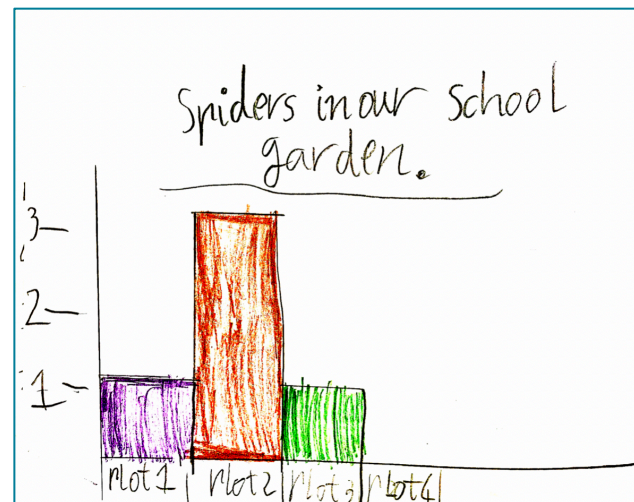 Spiders in our School
garden.
3
2
1
Plot1 Plot2 Plot3 Plot4